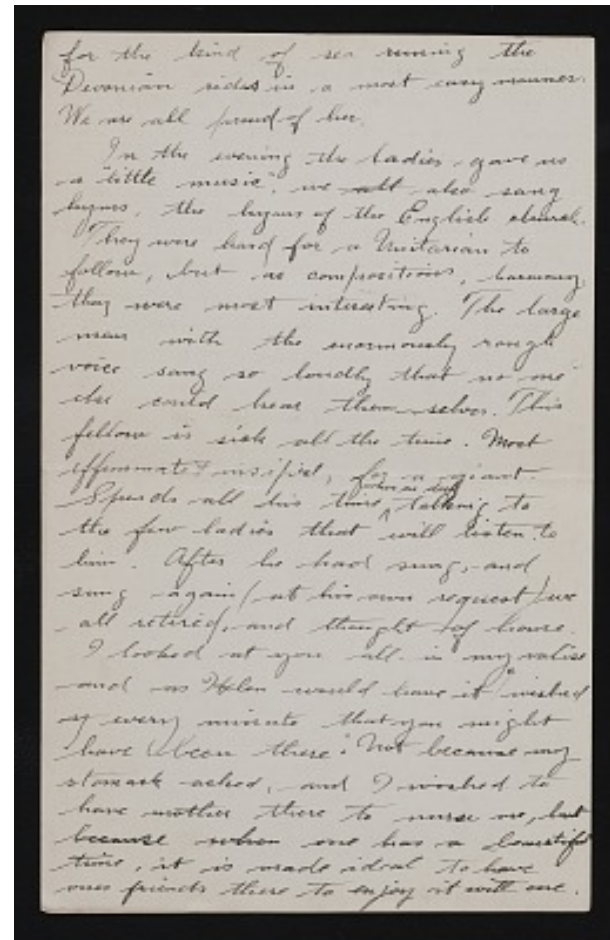 for the kind of sea running the
Devonian rides in a most easy manner.
We are all proud of her.
In the evening the ladies gave us
a "little music", we all also sang
hymns, the hymns of the English church.
They were hard for a Unitarian to
follow, but as compositions, harmony,
they were most interesting. The large
man with the enormously rough
voice sang so loudly that no one
else could hear them selves. This
fellow is sick all the time. Most
effeminate & insipid, for a giant.
Spends all his time, when on deck talking to
the few ladies that will listen to
him. After he had sung, and
sung again (at his own request) we
all retired, and thought of home.
I looked at you all in my valise
and as Helen would have it "wished
every minute that you might
have been there". Not because my
stomach ached, and I wished to
have mother there to nurse me, but
because when one has a beautiful
time, it is made ideal to have
ones friends there to enjoy it with one.